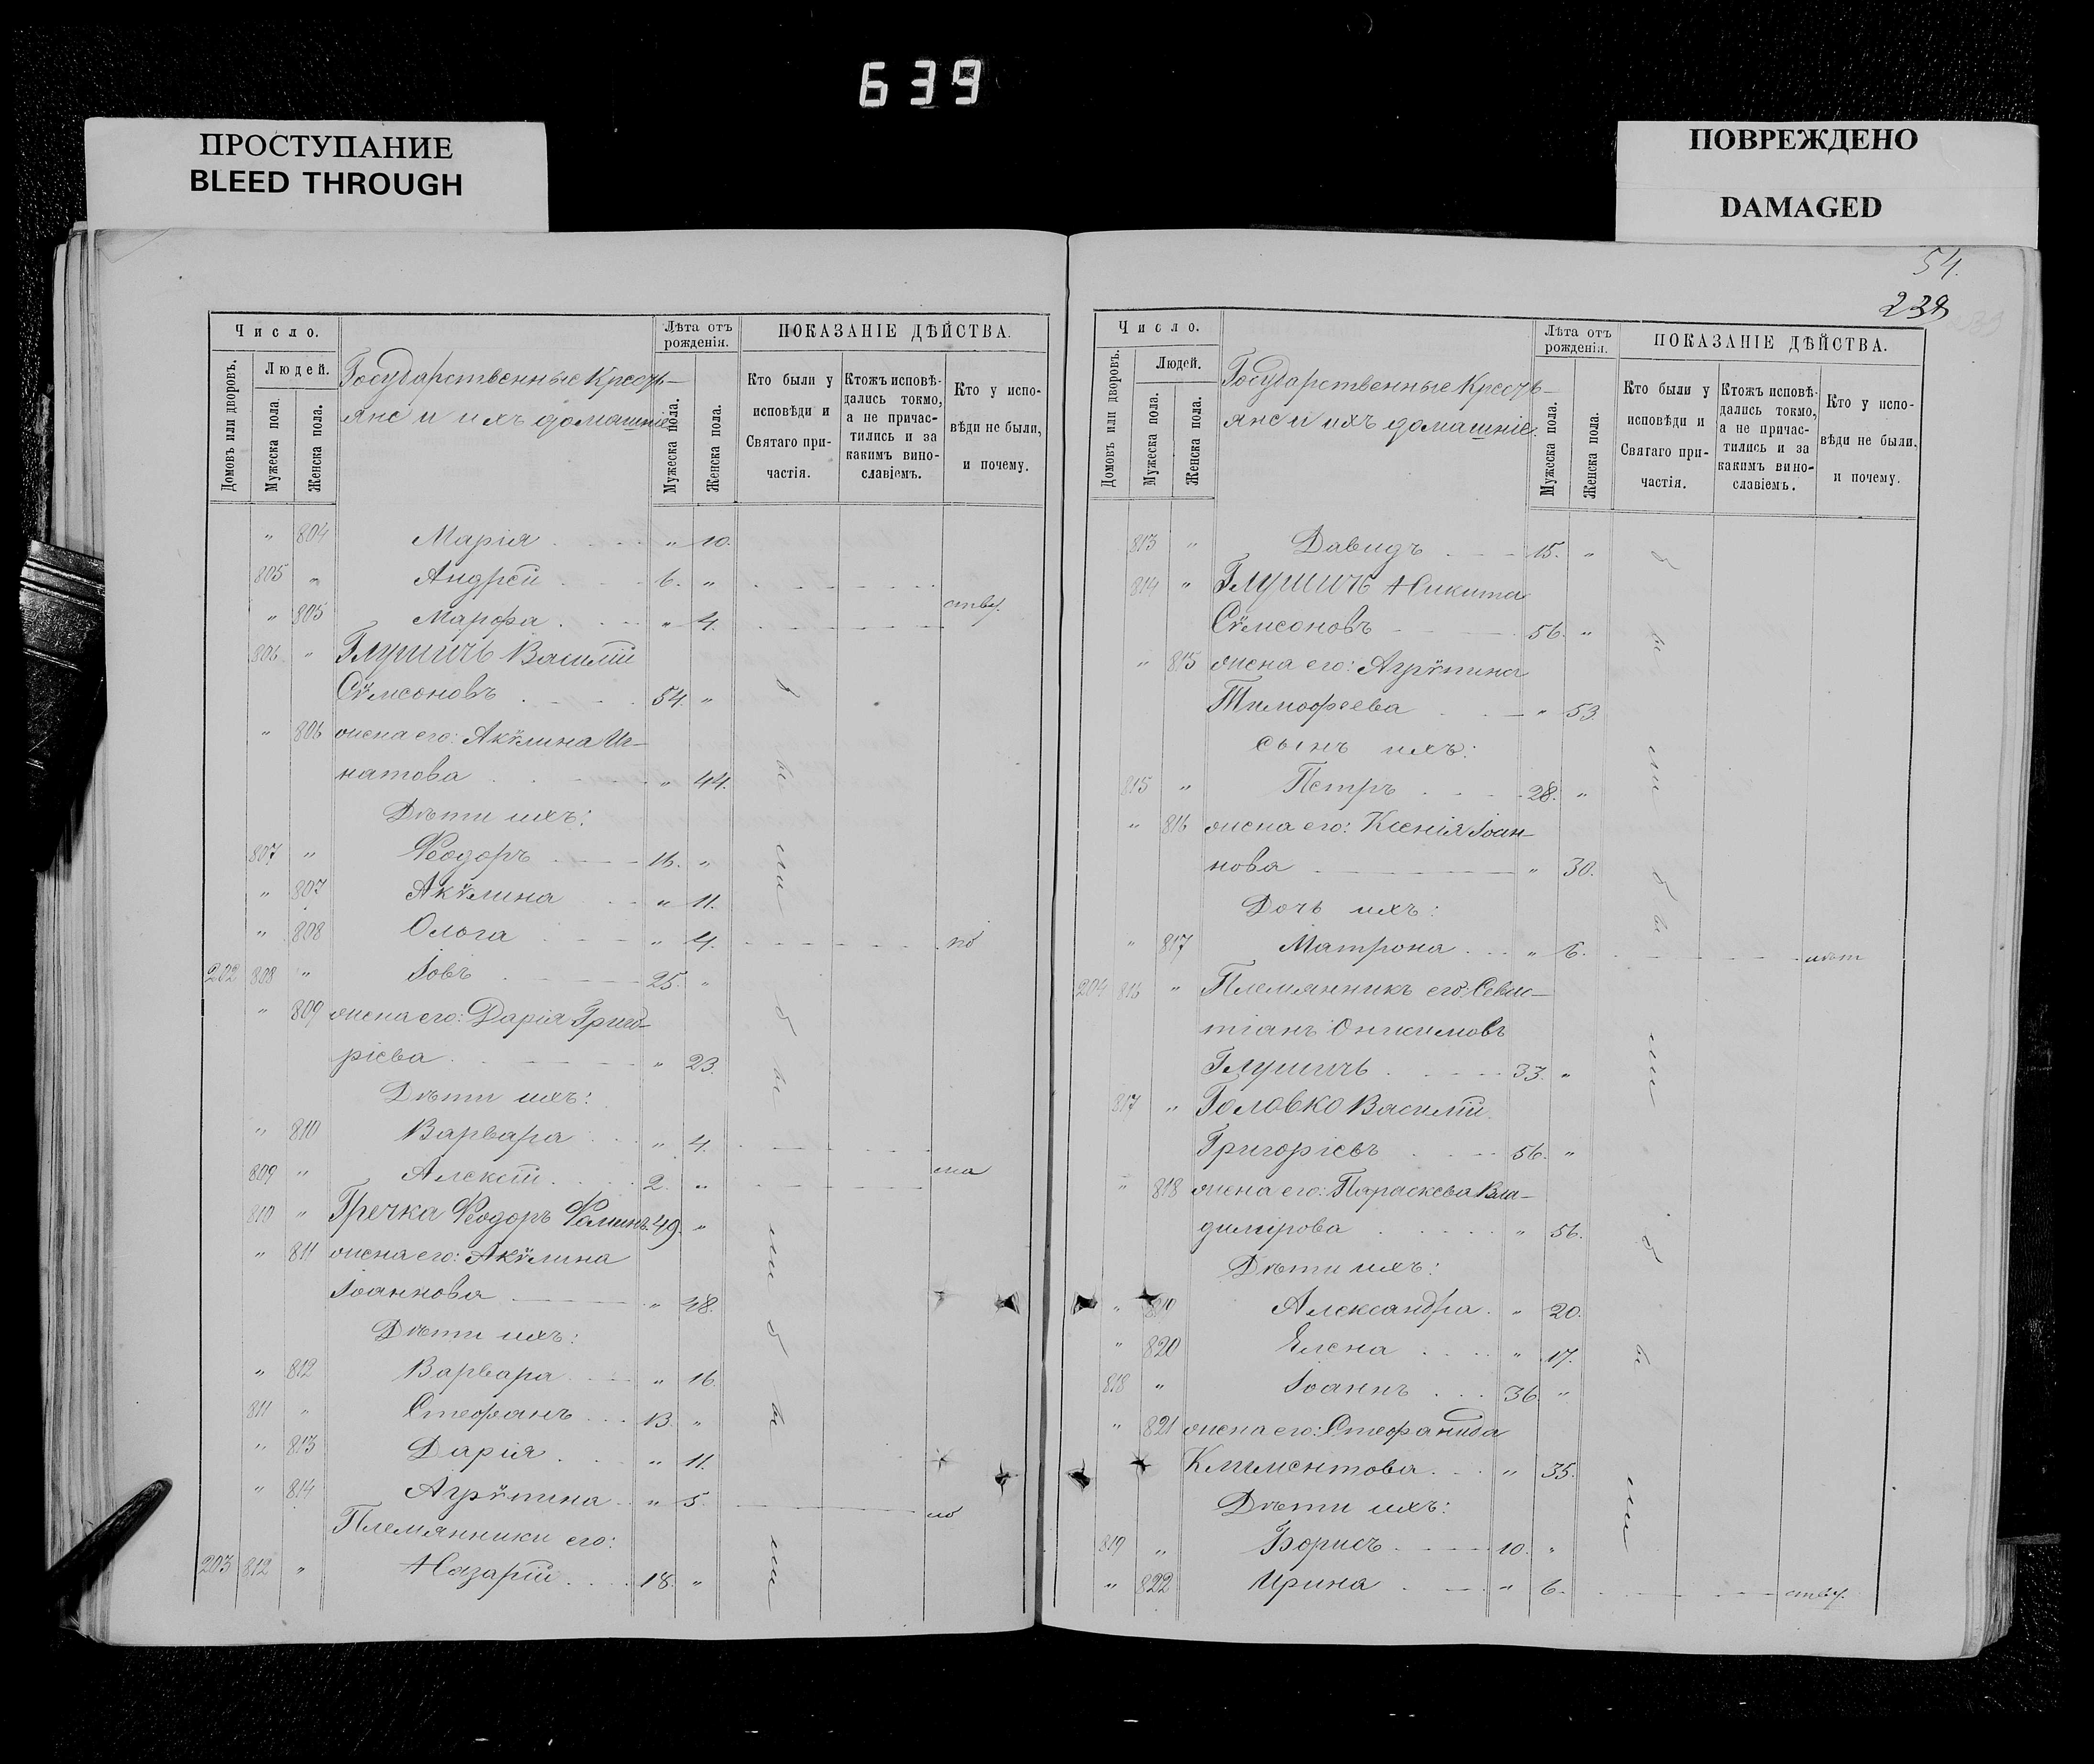 639
ПРОСТУПАНИЕ
BLEED THROUGH
ПОВРЕЖДЕНО
DAMAGED
Число.
Домовъ или дворовъ.
Людей.
Мужеска пола.
Женска пола.
Государственные Кресть-
яне и ихъ домашніе
Лѣта отъ
рожденія.
Мужеска пола.
Женска пола.
ПОКАЗАНІЕ ДѢЙСТВА.
Кто были у
исповѣди и
Святаго при-
частія.
Ктожъ исповѣ-
дались токмо,
а не причас-
тились и за
какимъ вино-
славіемъ.
Кто у испо-
вѣди не были,
и почему.
" 804 Марія " 10.
805 " Андрей 6. "
" 805 Марѳа " 4.
806 " Глушичъ Василій
Сѵмсоновъ 54. "
" 806 жена его: Акѵлина Иг-
натова " 44.
Дѣти ихъ:
807 " Ѳеодоръ 16. "
" 807 Акѵлина " 11.
" 808 Ольга " 4. по
202 808 " Іовъ 25. "
" 809 жена его: Дарія Григо-
ріева " 23.
Дѣти ихъ:
" 810 Варвара " 4.
809 " Алексій 2. " ма
810 " Гречка Ѳеодоръ Ѳоминъ. 49. "
" 811 жена его: Акѵлина
Іоаннова " 48.
Дѣти ихъ:
" 812 Варвара " 16.
811 " Стефанъ 13. "
" 813 Дарія " 11.
" 814 Агрѵпина " 5.
Племянники его:
203 812 " Назарій 18. "
были были были
54.
Число.
Домовъ или дворовъ.
Людей.
Мужеска пола.
Женска пола.
Государственные Кресть-
яне и ихъ домашніе.
Лѣта отъ
рожденія.
Мужеска пола.
Женска пола.
ПОКАЗАНІЕ ДѢЙСТВА.
Кто были у
исповѣди и
Святаго при-
частія.
Ктожъ исповѣ-
дались токмо,
а не причас-
тились и за
какимъ вино-
славіемъ.
Кто у испо-
вѣди не были,
и почему.
813 " Давидъ 15. "
814 " Глушичъ Никита
Сѵмсоновъ 56. "
" 815 жена его: Агрѵпина
Тимоѳеева " 53.
сынъ ихъ:
815 " Петръ 28. "
" 816 жена его: Ксенія Іоан-
нова " 30.
Дочь ихъ:
" 817 Матрона " 6.
204 816 " Племянникъ его: Севас-
тіанъ Онисимовъ
Глушичъ 33. "
817 " Головко Василій
Григоріевъ 56. "
" 818 жена его: Параскева Вла-
димірова " 56.
Дѣти ихъ:
" 819 Александра " 20.
" 820 Елена " 17.
818 " Іоаннъ 36. "
" 821 жена его: Стефанида
Климентова " 35.
Дѣти ихъ:
819 " Борисъ 10. "
" 822 Ирина " 6.
были были были